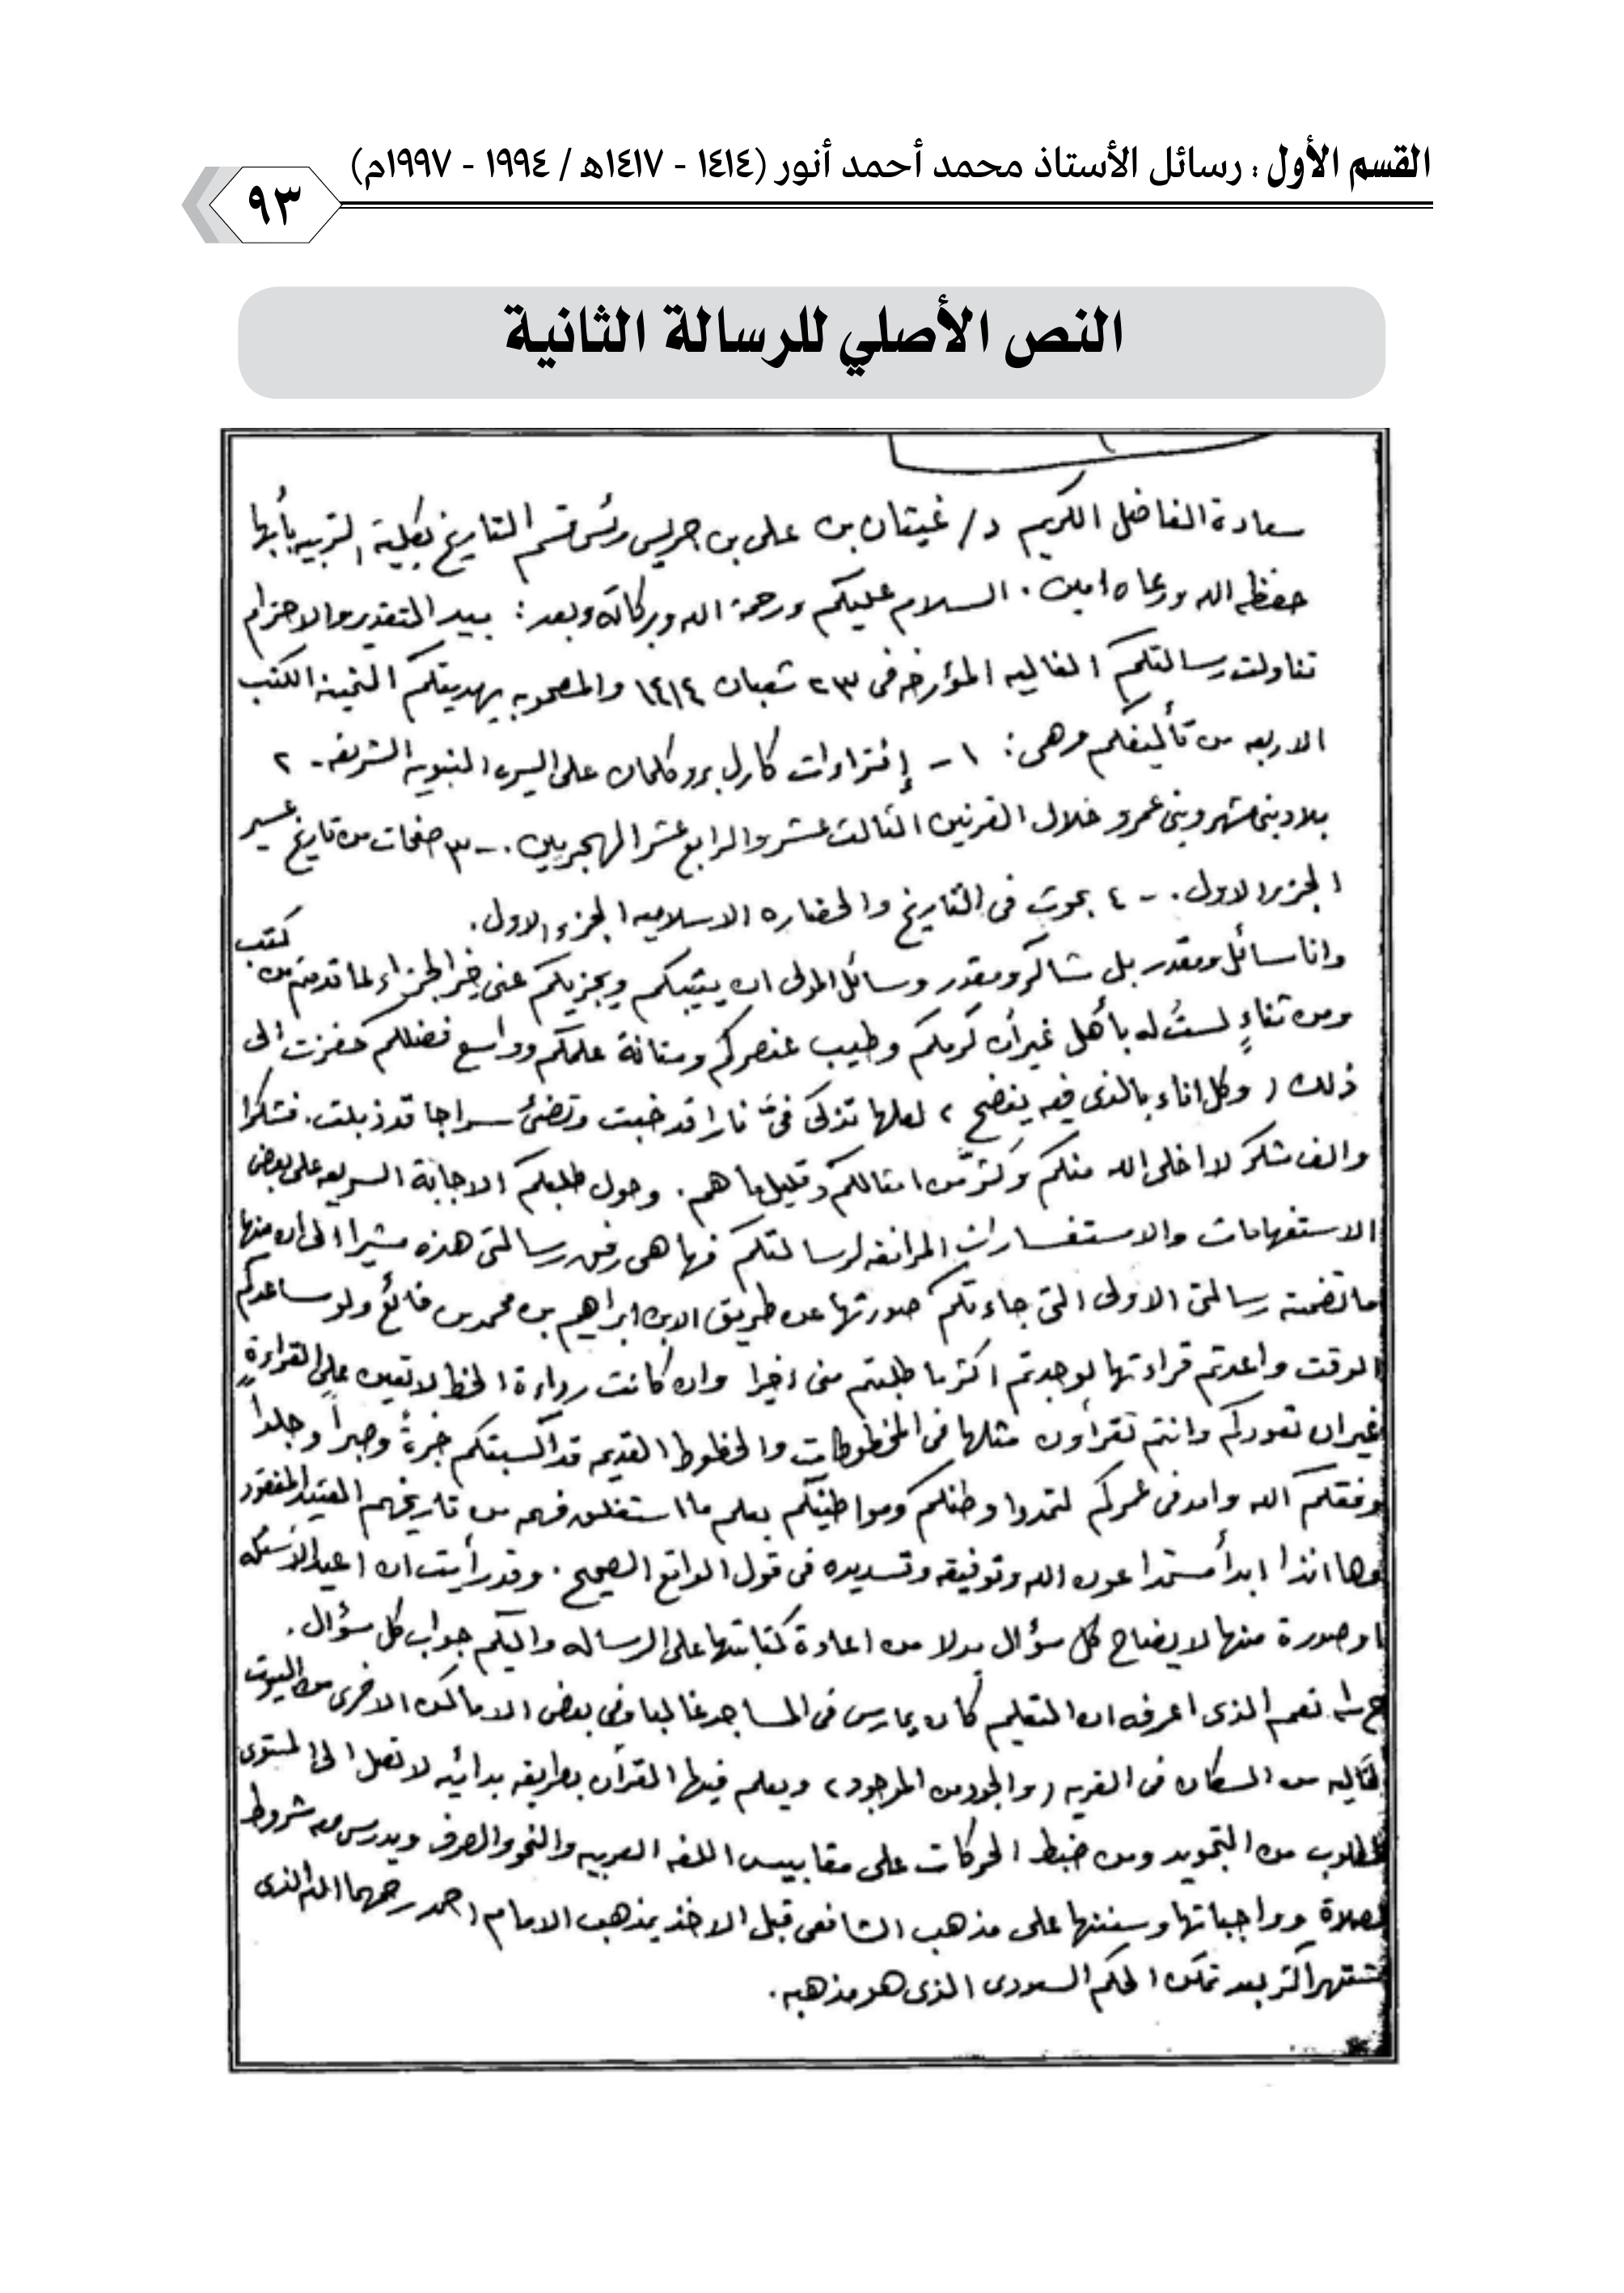 القسم الأول : رسائل الأستاذ محمد أحمد أنور (١٤١٤ - ١٤١٧هـ / ١٩٩٤ - ١٩٩٧م)
٩٣
النص الأصلي للرسالة الثانية
سعادة الفاضل الكريم د/ غيثان بن على بن جريس رئس قسم التاريخ بكلية التربيه بأبها
حفظه الله ورعاه امين . السلام عليكم ورحمة الله وبركاته وبعد : بيد التقدير والاحترام
تناولت رسالتكم الغاليه المؤرخه فى ٢٣ شعبان ١٤١٤ والمصحوبه بهديتكم الثمينه الكتب
الاربعه من تأليفكم وهى : ١ - إفتراءات كارل بروكلمان على السيره النبويه الشريفه - ٢
بلاد بنى شهر وبنى عمرو خلال القرنين الثالث عشر والرابع عشر الهجريين . - ٣ صفحات من تاريخ عسير
الجزء الاول . - ٤ بحوث فى التاريخ والحضاره الاسلاميه الجزء الاول .
وانا سائل ومقدر بل شاكر ومقدر وسائل المولى ان يثيبكم ويجزيكم عنى خير الجزاء لما قدمتم من كتب
ومن ثناءٍ لستُ له بأهل غير أن كرمكم وطيب عنصركم ومتانة علمكم وواسع فضلكم حفزت الى
ذلك ( وكل اناء بالذى فيه ينضح ) لعلها تذكى فىَّ نارا قد خبت وتضئ سراجا قد ذبلت . فشكرا
والف شكر لا اخلى الله منكم وكثّر من امثالكم وقليل ما هم . وحول طلبكم الاجابة السريعه على بعض
الاستفهامات والاستفسارات المرافقه لرسالتكم فها هى رفق رسالتى هذه مشيرا الى ان منها
ما تضمنته رسالتى الاولى التى جاءتكم صورتها عن طريق الابن ابراهيم بن محمد بن فائع ولو ساعدكم
الوقت واعدتم قراءتها لوجدتم اكثر ما طلبتم منى اخيرا وان كانت رداءة الخط لا تعين على القراءةِ
غير ان تعودكم وانتم تقرأون مثلها فى المخطوطات والخطوط القديمه قد اكسبتكم خبرةً وصبراً وجلداً
وفقكم الله وامد فى عمركم لتمدوا وطنكم ومواطنيكم بعلم ما استغلق فهمه من تاريخهم العتيد المفقود
وها انذا ابدأ مستمدا عون الله وتوفيقه وتسديده فى قول الواقع الصحيح . وقد رأيت ان اعيد الاسئله
او صورة منها لايضاح كل سؤال بدلا من اعادة كتابتها على الرساله واليكم جواب كل سؤال .
نعم الذى اعرفه ان التعليم كان يمارس فى المساجد غالبا وفى بعض الاماكن الاخرى من البيوت
الخاليه من السكان فى القريه ( والجود من الموجود ) ويعلم فيها القرآن بطريقه بدائيه لا تصل الى المستوى
المطلوب من التجويد ومن ضبط الحركات على مقاييس اللغه العربيه والنحو والصرف ويدرس معه شروط
الصلاة وواجباتها وسننها على مذهب الشافعى قبل الاخذ بمذهب الامام احمد رحمهما الله الذى
اشتهر اكثر بعد تمكن الحكم السعودى الذى هو مذهبه .